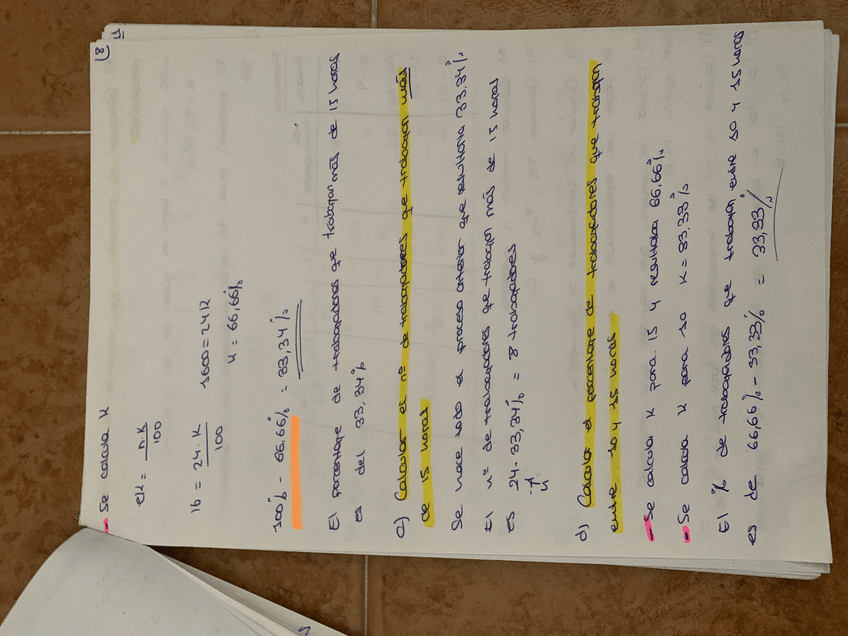 18)
- Se calcula K
eK = n.K / 100
16 = 24.K / 100 1600 = 24K
K = 66,66%
100% - 66.66% = 33,34%
El porcentaje de trabajadores que trabajan más de 15 horas
es del 33,34%
c) Calcular el nº de trabajadores que trabajan más
de 15 horas
Se hace todo el proceso anterior que resultaría 33,34%
El nº de trabajadores que trabajan más de 15 horas
es 24.33,34% = 8 trabajadores
n
d) Calcular el porcentaje de trabajadores que trabajan
entre 10 y 15 horas
- Se calcula K para 15 y resultaba 66,66%
- Se calcula K para 10 K = 33,33%
El % de trabajadores que trabajan entre 10 y 15 horas
es de 66,66% - 33,33% = 33,33%